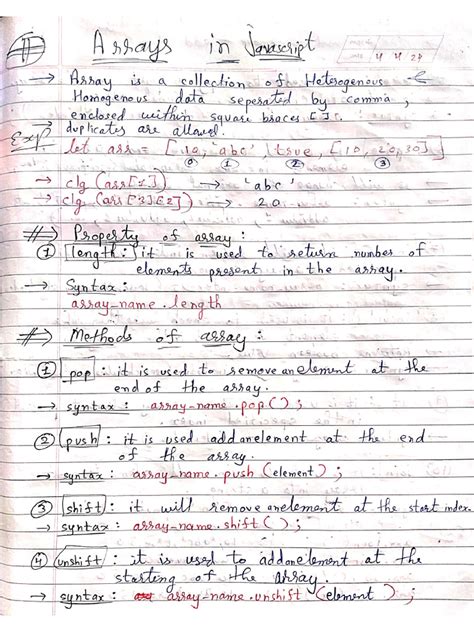 Arrays in Javascript
4 4 24
→ Array is a collection of Heterogenous &
Homogenous data seperated by comma,
enclosed within square braces [ ].
→ duplicates are allowed.
Exp. let arr = [10, 'abc', true, [10, 20, 30]]
0 1 2 3
→ clg (arr[1]) → 'abc'
→ clg (arr[3][2]) → 20
# Property of array :
① length : it is used to return number of
elements present in the array.
→ Syntax :
array-name.length
# Methods of array :
① pop : it is used to remove an element at the
end of the array.
→ syntax : array-name.pop();
② push : it is used add an element at the end
of the array.
→ syntax : array-name.push(element);
③ shift : it will remove an element at the start index.
→ syntax : array-name.shift();
④ unshift : it is used to add an element at the
starting of the array.
→ syntax : array-name.unshift(element);